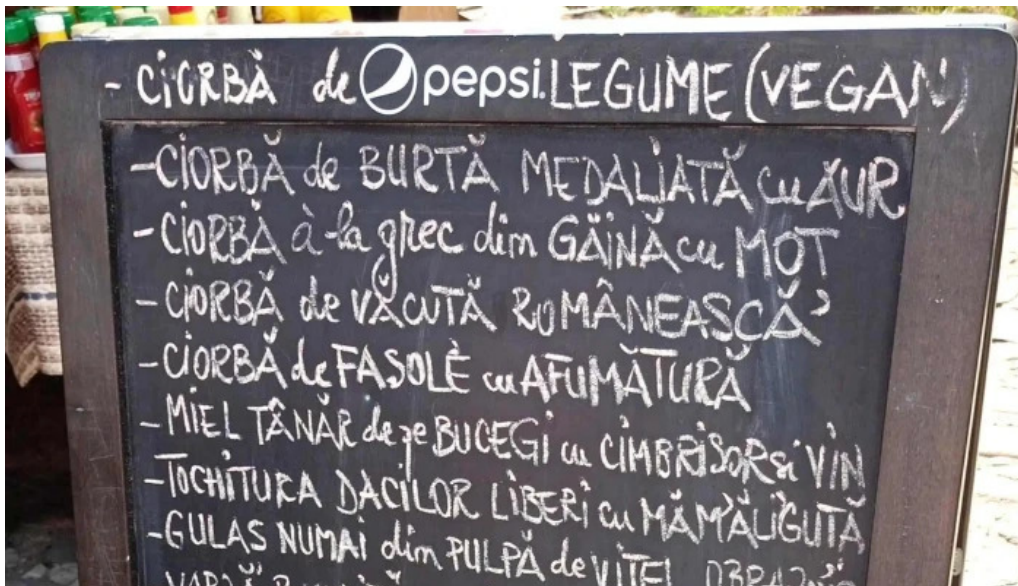 - CIORBĂ de pepsi. LEGUME (VEGAN)
- CIORBĂ de BURTĂ MEDALIATĂ cu AUR
- CIORBĂ à-la grec dim GĂINĂ cu MOT
- CIORBĂ de VĂCUTĂ ROMÂNEASCĂ
- CIORBĂ de FASOLÈ cu AFUMĂTURĂ
- MIEL TÂNĂR de pe BUCEGI cu CIMBRISOR si VIN
- TOCHITURA DACILOR LIBERI cu MĂMĂLIGUTĂ
- GULAS NUMAI dim PULPĂ de VITEL